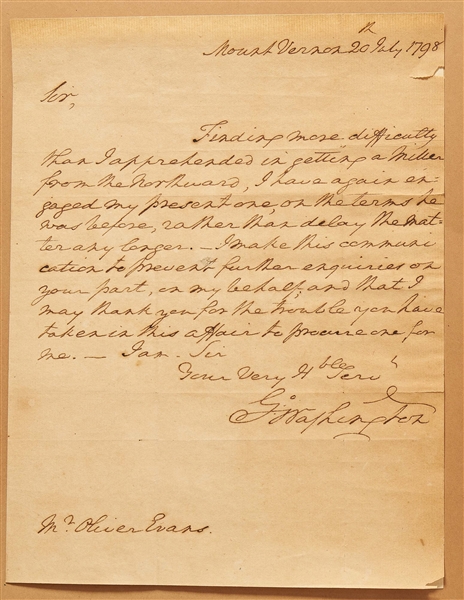 Mount Vernon 20th July 1798
Sir,
Finding more difficulty
than I apprehended in getting a Miller
from the Northward, I have again en-
gaged my present one, on the terms he
was before, rather than delay the mat-
ter any longer. — I make this communi
cation to prevent further enquiries on
your part, on my behalf, and that I
may thank you for the trouble you have
taken in this affair to procure one for
me. — I am – Sir
Your Very Hble Servt
G:Washington
Mr. Oliver Evans.